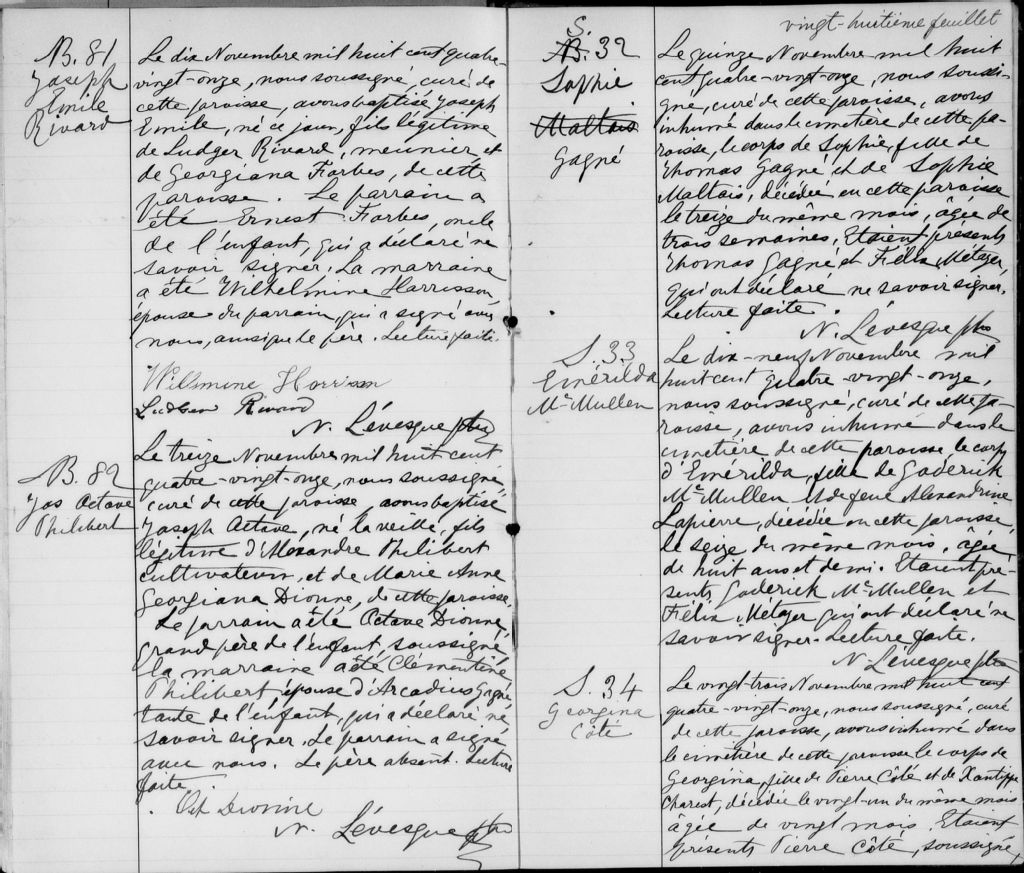 B. 81
Joseph
Emile
Rivard
Le dix Novembre mil huit cent quatre-
vingt-onze, nous soussigné, curé de
cette paroisse, avons baptisé Joseph
Emile, né ce jour, fils légitime
de Ludger Rivard, meunier et
de Georgiana Forbes, de cette
paroisse. Le parrain a
été Ernest Forbes, oncle
de l'enfant, qui a déclaré ne
savoir signer. La marraine
a été Wilhelmine Harrisson
épouse du parrain, qui a signé avec
nous, ainsi que le père. Lecture faite.
Wilhmine Horrison
Ludger Rivard
N. Lévesque ptre
B. 82
Jos Octave
Philibert
Le treize Novembre mil huit cent
quatre-vingt-onze, nous soussigné
curé de cette paroisse avons baptisé
Joseph Octave, né la veille, fils
légitime d'Alexandre Philibert
cultivateur, et de Marie Anne
Georgiana Dionne, de cette paroisse.
Le parrain a été Octave Dionne,
grand père de l'enfant, soussigné,
la marraine a été Clémentine
Philibert, épouse d'Arcadius Gagné,
tante de l'enfant, qui a déclaré ne
savoir signer. Le parrain a signé
avec nous. Le père absent. Lecture
faite.
Oct Dionne
N. Lévesque ptre
vingt-huitième feuillet
S.
B. 32
Sophie
Maltais
Gagné
Le quinze Novembre mil huit
cent quatre-vingt-onze, nous soussi-
gné, curé de cette paroisse, avons
inhumé dans le cimetière de cette pa-
roisse, le corps de Sophie, fille de
Thomas Gagné et de Sophie
Maltais, décédée en cette paroisse
le treize du même mois, âgée de
trois semaines. Etaient présents
Thomas Gagné et Félix Métayer,
qui ont déclaré ne savoir signer.
Lecture faite.
N. Lévesque ptre
S. 33
Emérilda
Mc Mullen
Le dix-neuf Novembre mil
huit cent quatre-vingt-onze,
nous soussigné, curé de cette pa-
roisse, avons inhumé dans le
cimetière de cette paroisse le corps
d'Emérilda, fille de Goderick
Mc Mullen et de feue Alexandrine
Lapierre, décédée en cette paroisse,
le seize du même mois, âgée
de huit ans et demi. Etaient pré-
sents Goderick Mc Mullen et
Félix Métayer qui ont déclaré ne
savoir signer. Lecture faite.
N. Lévesque ptre
S. 34
Georgina
Côté
Le vingt-trois Novembre mil huit cent
quatre-vingt-onze, nous soussigné, curé
de cette paroisse, avons inhumé dans
le cimetière de cette paroisse le corps de
Georgina, fille de Pierre Côté et de Xantippe
Charest, décédée le vingt-un du même mois
âgée de vingt mois. Etaient
présents Pierre Côté, soussigné,